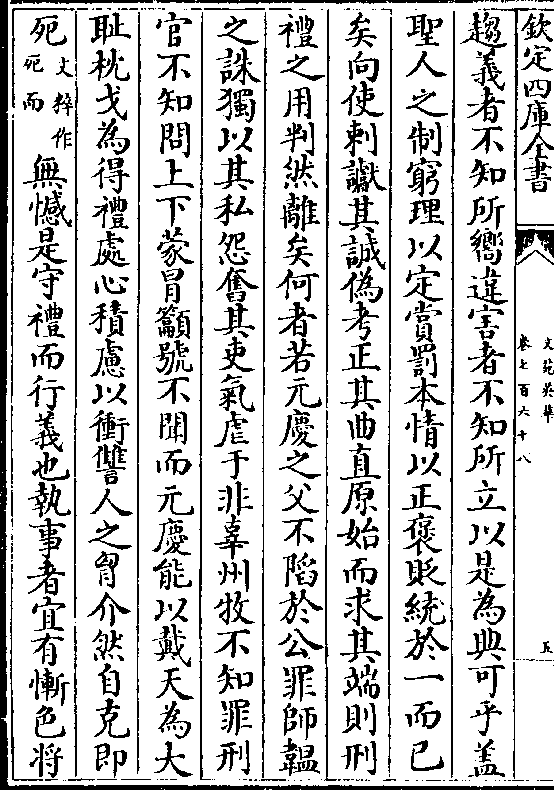 欽定四庫全書
文苑英華
卷七百六十八
五
趨義者不知所嚮違害者不知所立以是為典可乎蓋
聖人之制窮理以定賞罰本情以正褒貶統於一而已
矣向使刺讞其誠偽考正其曲直原始而求其端則刑
禮之用判然離矣何者若元慶之父不陷於公罪師韞
之誅獨以其私怨奮其吏氣虐于非辜州牧不知罪刑
官不知問上下蒙冒籲號不聞而元慶能以戴天為大
耻枕戈為得禮處心積慮以衝讐人之胷介然自克即
死文粹作死而無憾是守禮而行義也執事者宜有慚色将